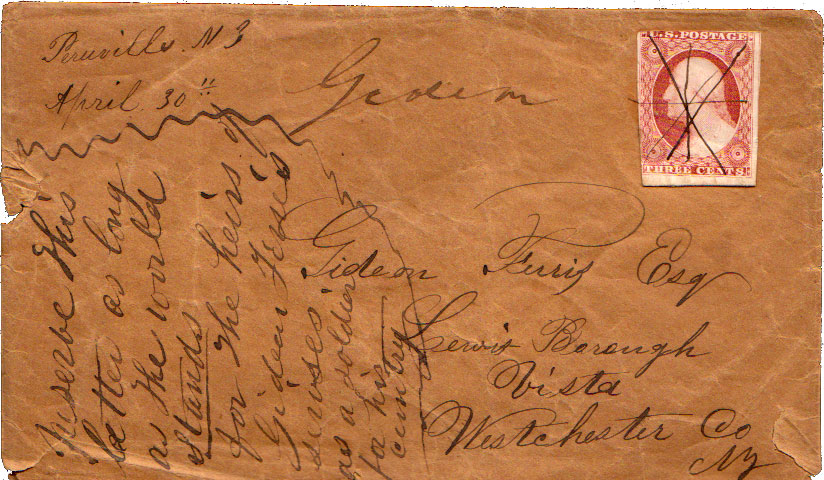 Peruville N Y
April 30th
Gideon
U.S. POSTAGE
THREE CENTS
Gideon Ferris Esq
Lewis Borough
Vista
Westchester Co
NY
Preserve this
letter as long
as the world
stands
for the heirs of
Gideon Ferris
as a soldier
for his
cuntry